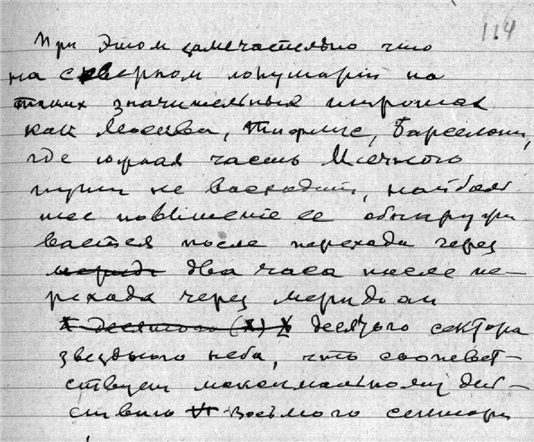 114
При этом замечательно что
на северном полушарии на
таких значительных широтах
как Москва, Тифлис, Барселона,
где южная часть Млечного
пути не восходит, наиболь
шее повышение ее обнаружи
вается после перехода через
мериди два часа после пе-
рехода через меридиан
X десятого (X) X десятого сектора
звездного неба, что соответ-
ствует максимальному дей-
ствию VI восьмого сектора